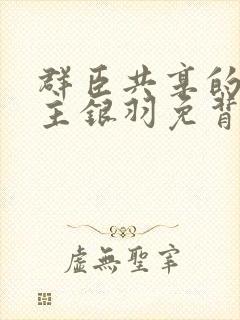 群臣共享的
主银羽免背
虚無聖宰